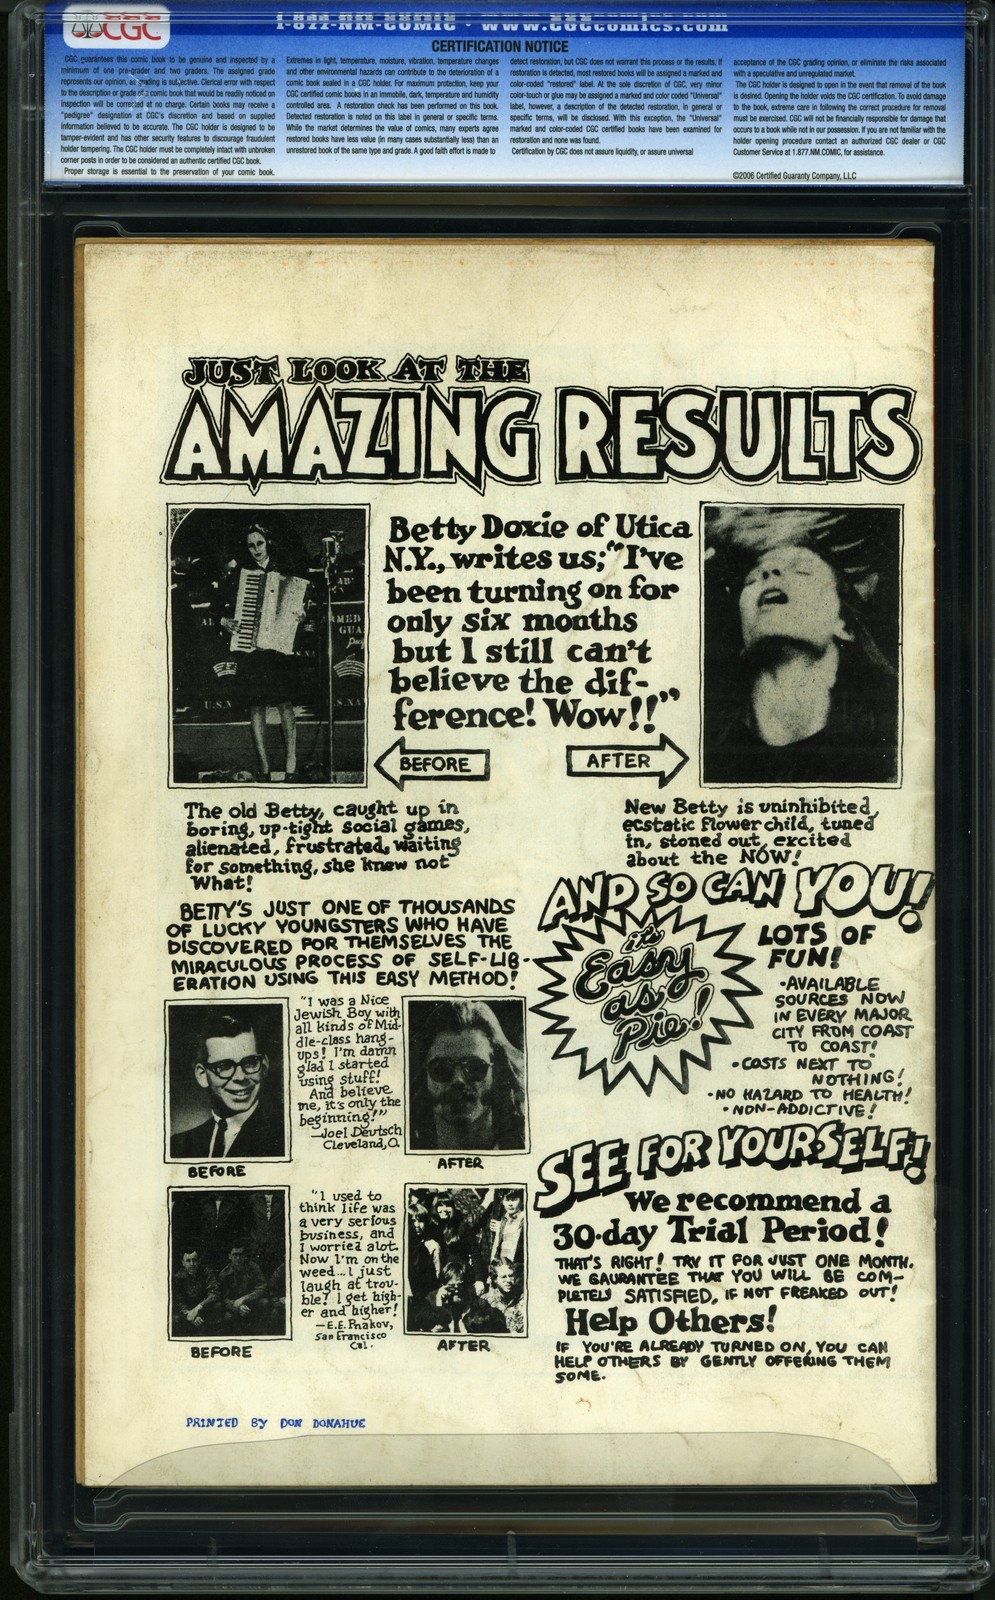 CGC
1-877-NM-COMIC · www.CGCcomics.com
CERTIFICATION NOTICE
CGC guarantees this comic book to be genuine and inspected by a
minimum of one pre-grader and two graders. The assigned grade
represents our opinion, as grading is subjective. Clerical error with respect
to the description or grade of a comic book that would be readily noticed on
inspection will be corrected at no charge. Certain books may receive a
"pedigree" designation at CGC's discretion and based on supplied
information believed to be accurate. The CGC holder is designed to be
tamper-evident and has other security features to discourage fraudulent
holder tampering. The CGC holder must be completely intact with unbroken
corner posts in order to be considered an authentic certified CGC book.
Proper storage is essential to the preservation of your comic book.
Extremes in light, temperature, moisture, vibration, temperature changes
and other environmental hazards can contribute to the deterioration of a
comic book sealed in a CGC holder. For maximum protection, keep your
CGC certified comic books in an immobile, dark, temperature and humidity
controlled area. A restoration check has been performed on this book.
Detected restoration is noted on this label in general or specific terms.
While the market determines the value of comics, many experts agree
restored books have less value (in many cases substantially less) than an
unrestored book of the same type and grade. A good faith effort is made to
detect restoration, but CGC does not warrant this process or the results. If
restoration is detected, most restored books will be assigned a marked and
color-coded "restored" label. At the sole discretion of CGC, very minor
color-touch or glue may be assigned a marked and color coded "Universal"
label, however, a description of the detected restoration, in general or
specific terms, will be disclosed. With this exception, the "Universal"
marked and color-coded CGC certified books have been examined for
restoration and none was found.
Certification by CGC does not assure liquidity, or assure universal
acceptance of the CGC grading opinion, or eliminate the risks associated
with a speculative and unregulated market.
The CGC holder is designed to open in the event that removal of the book
is desired. Opening the holder voids the CGC certification. To avoid damage
to the book, extreme care in following the correct procedure for removal
must be exercised. CGC will not be financially responsible for damage that
occurs to a book while not in our possession. If you are not familiar with the
holder opening procedure contact an authorized CGC dealer or CGC
Customer Service at 1.877.NM.COMIC, for assistance.
©2006 Certified Guaranty Company, LLC
JUST LOOK AT THE
AMAZING RESULTS
Betty Doxie of Utica
N.Y., writes us; "I've
been turning on for
only six months
but I still can't
believe the dif-
ference! Wow!!"
BEFORE
AFTER
The old Betty, caught up in
boring, up-tight social games,
alienated, frustrated, waiting
for something, she knew not
What!
New Betty is uninhibited,
ecstatic flower child, tuned
in, stoned out, excited
about the NOW!
BETTY'S JUST ONE OF THOUSANDS
OF LUCKY YOUNGSTERS WHO HAVE
DISCOVERED FOR THEMSELVES THE
MIRACULOUS PROCESS OF SELF-LIB-
ERATION USING THIS EASY METHOD!
"I was a Nice
Jewish Boy with
all kinds of Mid-
dle-class hang-
ups! I'm damn
glad I started
using stuff!
And believe
me, it's only the
beginning!"
—Joel Deutsch
Cleveland, O.
BEFORE
AFTER
"I used to
think life was
a very serious
business, and
I worried alot.
Now I'm on the
weed... I just
laugh at trou-
ble! I get high-
er and higher!
—E.E. Pnakov,
San Francisco
Cal.
BEFORE
AFTER
AND SO CAN YOU!
it's
Easy
as
Pie!
LOTS OF
FUN!
·AVAILABLE
SOURCES NOW
IN EVERY MAJOR
CITY FROM COAST
TO COAST!
·COSTS NEXT TO
NOTHING!
·NO HAZARD TO HEALTH!
·NON-ADDICTIVE!
SEE FOR YOURSELF!
We recommend a
30-day Trial Period!
THAT'S RIGHT! TRY IT FOR JUST ONE MONTH.
WE GAURANTEE THAT YOU WILL BE COM-
PLETELY SATISFIED, IF NOT FREAKED OUT!
Help Others!
IF YOU'RE ALREADY TURNED ON, YOU CAN
HELP OTHERS BY GENTLY OFFERING THEM
SOME.
PRINTED BY DON DONAHUE